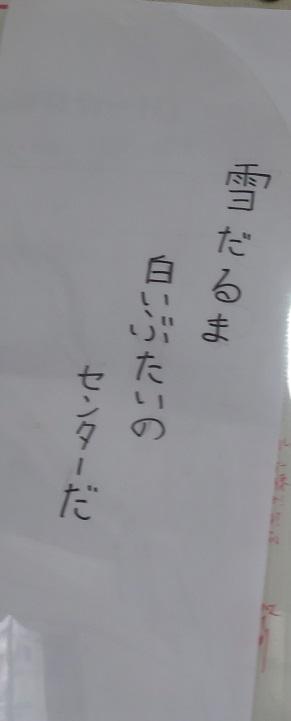 雪だるま
白いぶたいの
センターだ